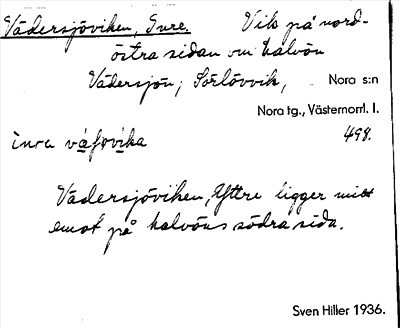 Vädersjöviken, Inre. Vik på nord-
östra sidan om halvön
Vädersjön; Sörlövvik, Nora s:n
Nora tg., Västernorrl. l.
inra väsovika 498.
Vädersjöviken, Yttre ligger mitt
emot på halvöns södra sida.
Sven Hiller 1936.